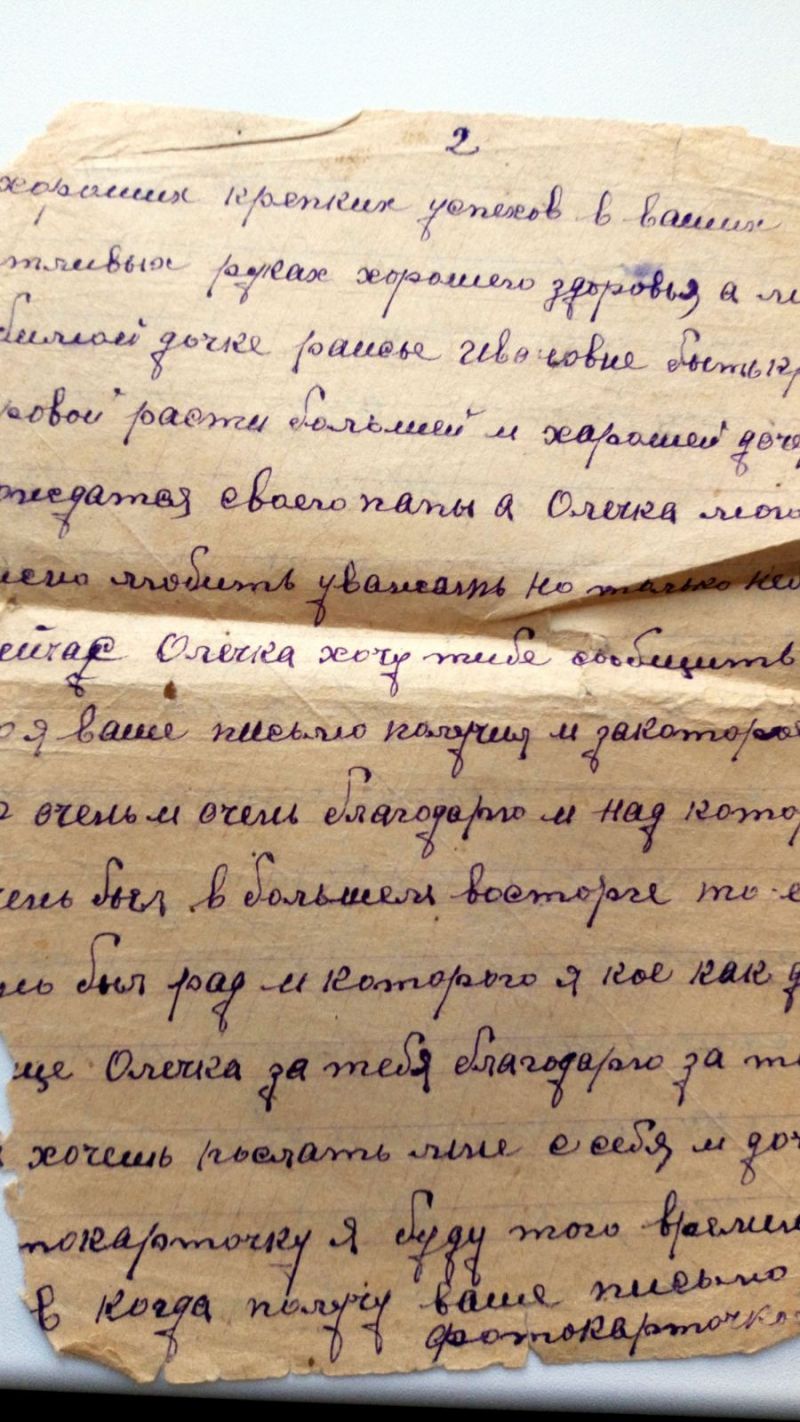 2
хороших крепких успехов в ваших
тливых руках хорошего здоровья, а лю
бимой дочке раисье Ивановне быть кр
ровой расти большей и харошей доче
ждатся своего папы а Олечка мого
любить уважать но только не
сейчас Олечка хочу тибе сообщить
я ваше письмо получил и закоторое
очень и очень благодарю и над котор
чень был в большем восторге то е
был рад и которого я кое как д
ще Олечка за тебя благодарю за т
хочешь послать мне с себя и доч
токарточку я буду того времен
в когда получу ваше письмо
фотокарточко